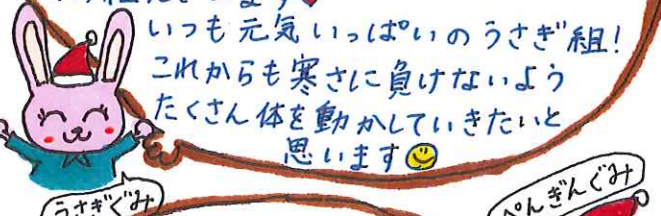 ます
いつも元気いっぱいのうさぎ組！
これからも寒さに負けないよう
たくさん体を動かしていきたいと
思います
うさぎぐみ
ぺんぎんぐみ